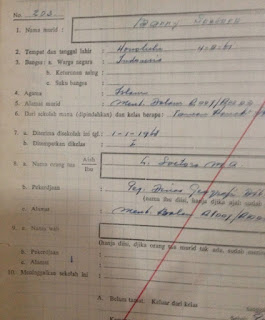 No. 203
1. Nama murid : Barry Soetoro
2. Tempat dan tanggal lahir : Honolulu 4-8-61
3. Bangsa : a. Warga negara : Indonesia
b. Keturunan asing :
c. Suku bangsa :
4. Agama : Islam
5. Alamat murid : Ment. Dalam
6. Dari sekolah mana (dipindahkan) dan kelas berapa :
7. a. Diterima disekolah ini tgl. : 1-1-1968
b. Ditempatkan dikelas : I
8. a. Nama orang tua Ayah : L. Soetoro M.A.
Ibu
b. Pekerdjaan : Peg. Dinas Geografi
(nama ibu diisi, hanja djika ajah
c. Alamat : Ment. Dalam
9. a. Nama wali :
(hanja diisi, djika orang tua murid tak ada, sudah
b. Pekerdjaan :
c. Alamat :
10. Meninggalkan sekolah ini :
A. Belum tamat. Keluar dari kelas